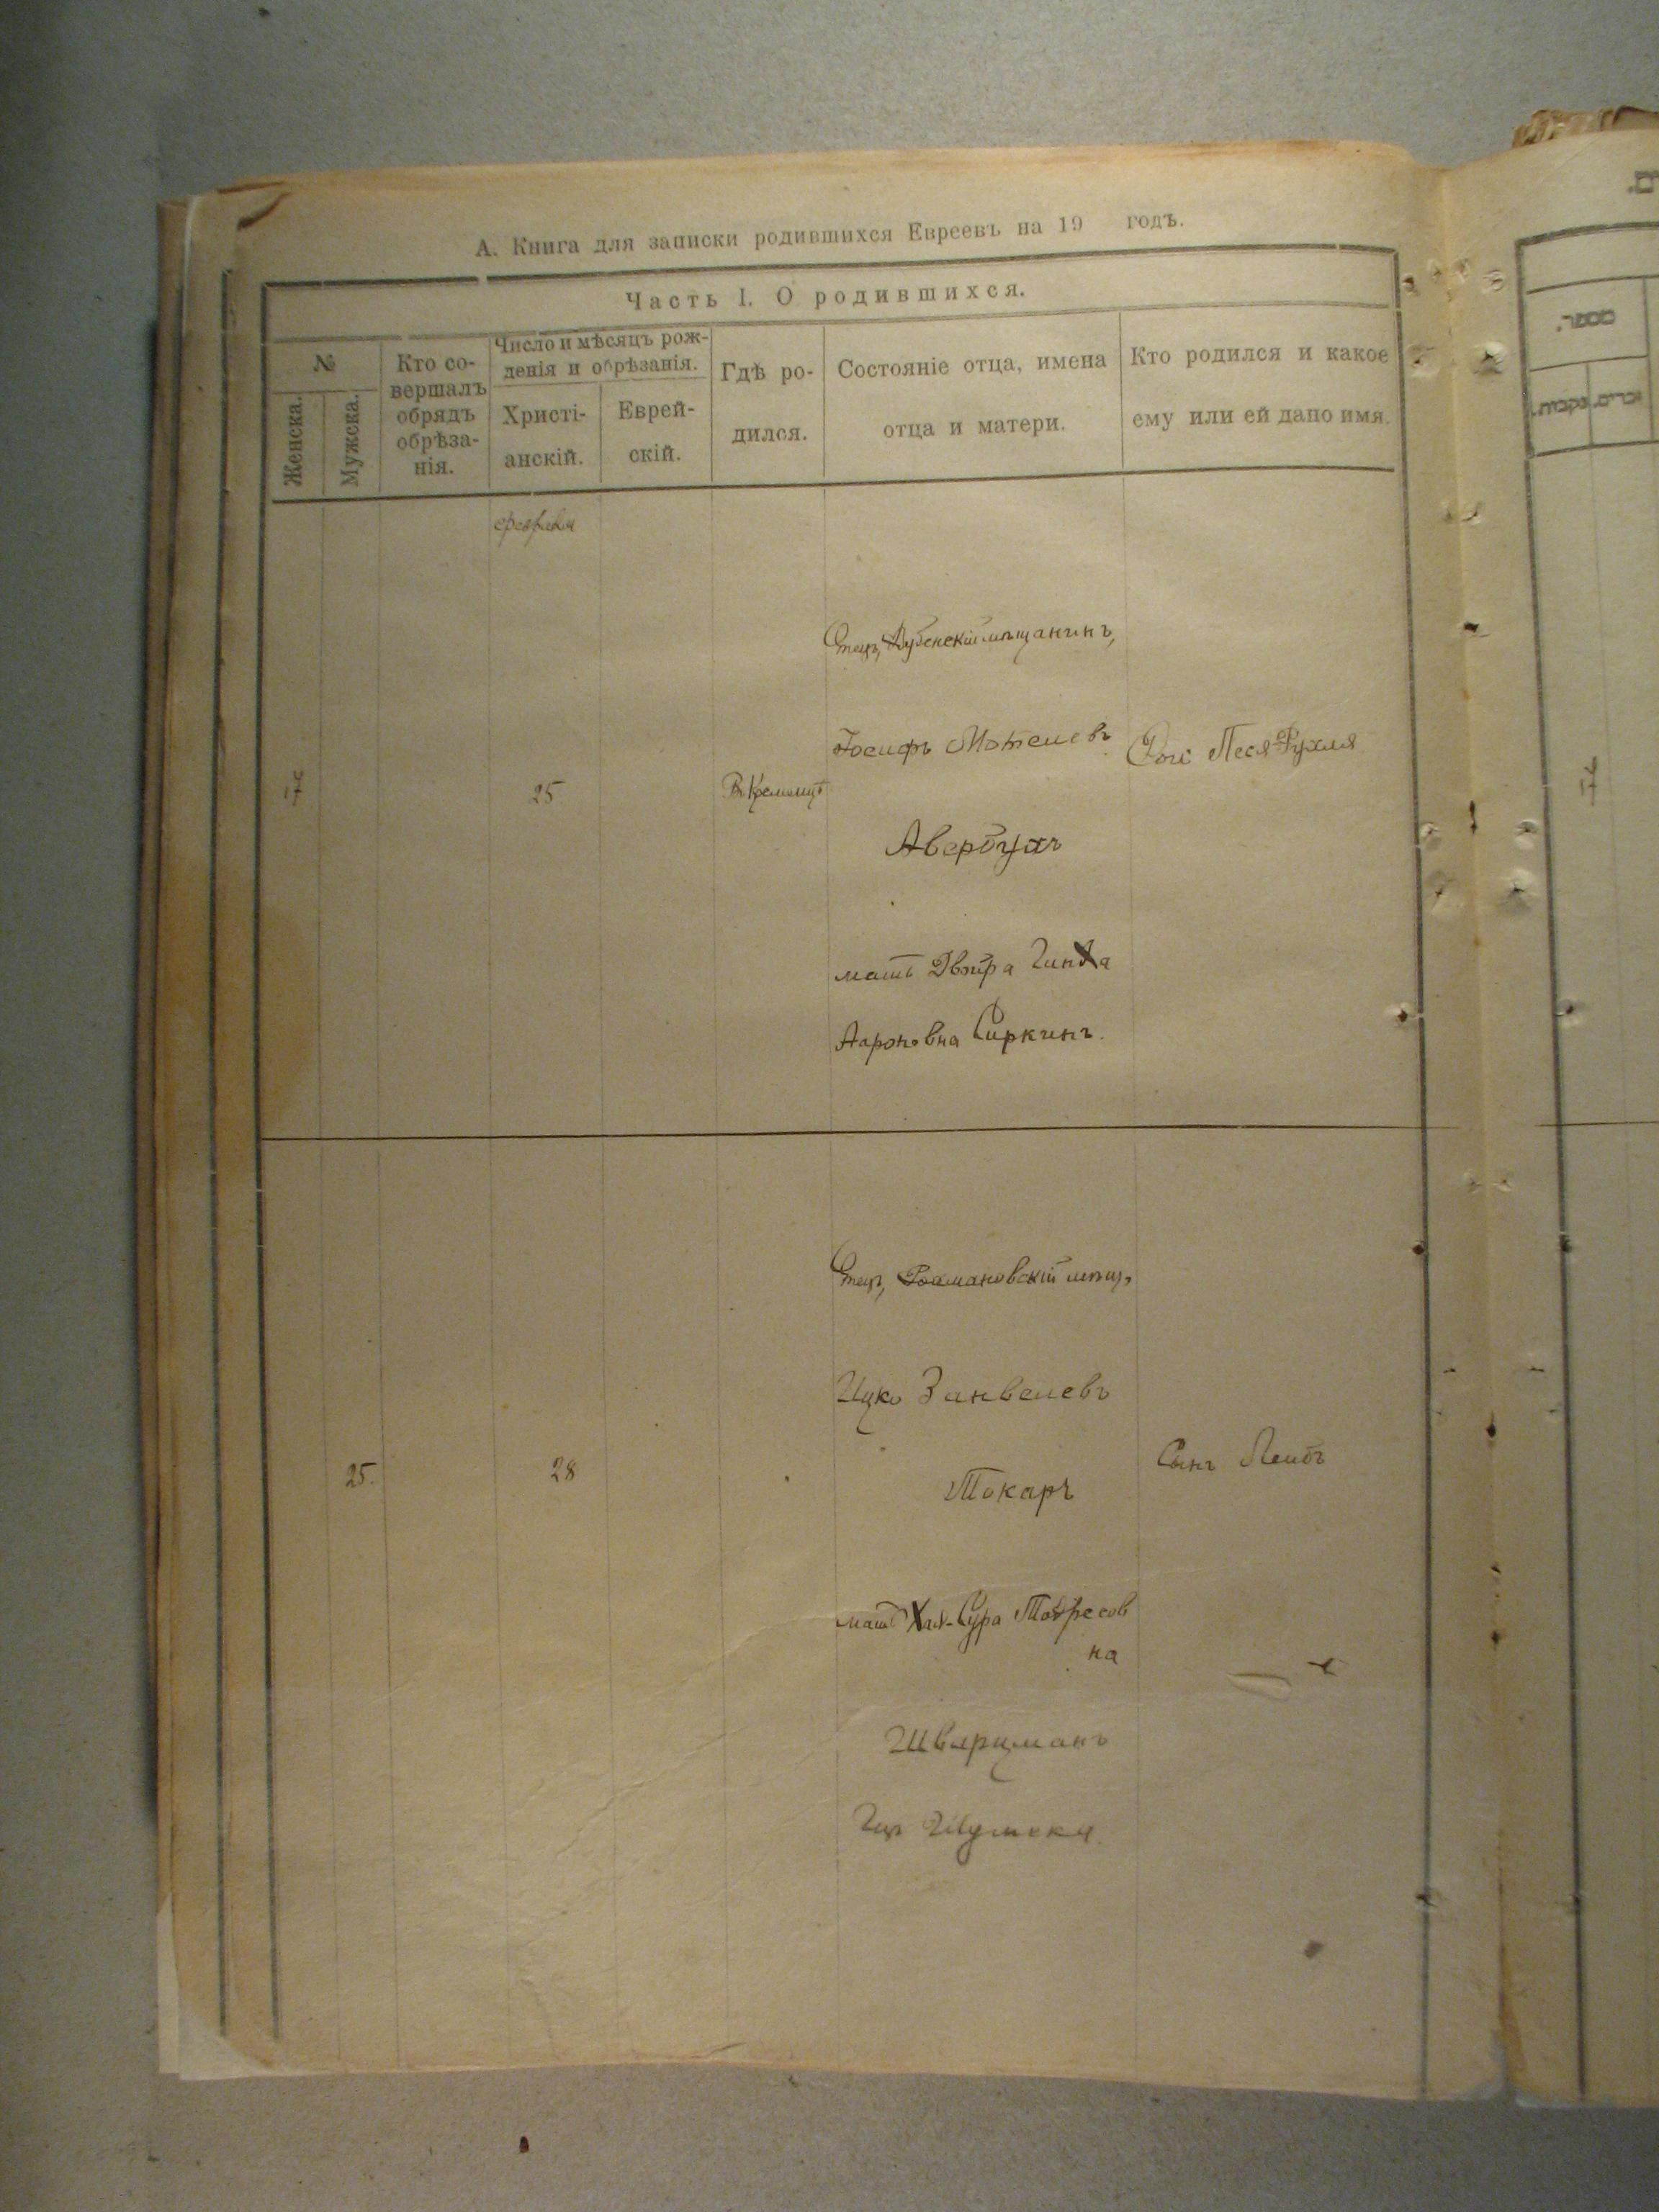 А. Книга для записки родившихся Евреевъ на 19 годъ.
Часть I. О родившихся.
№
Женска.
Мужска.
Кто со-
вершалъ
обрядъ
обрѣза-
нія.
Число и мѣсяцъ рож-
денія и обрѣзанія.
Христі-
анскій.
Еврей-
скій.
Гдѣ ро-
дился.
Состояніе отца, имена
отца и матери.
Кто родился и какое
ему или ей дано имя.
февраля
17
25
Въ Кременцѣ
Отецъ, Дубенскій мѣщанинъ,
Іосифъ Мотелевъ
Авербухъ
мать Двойра
Аароновна Сиркинъ.
Дочь Песя-Рухля
17
25.
28
Отецъ, мѣщ.
Ицко Занвелевъ
Токаръ
мать Хая-Сура
на
Шварцманъ
Шумска
Сынъ Лейбъ
מספר.
זכרים.
נקבות.